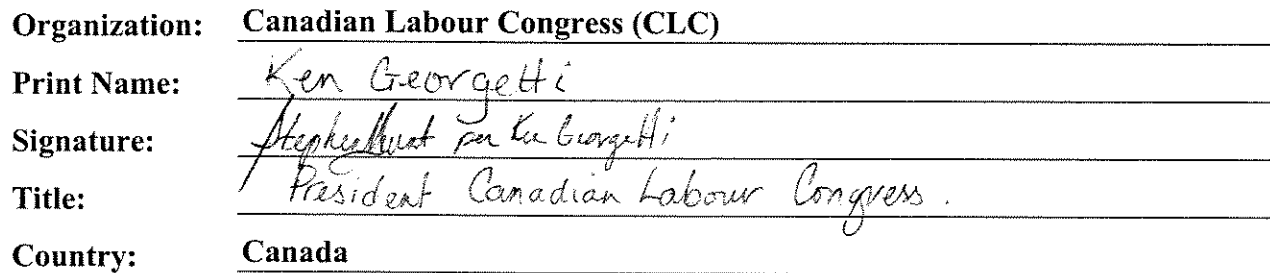 Organization: Canadian Labour Congress (CLC)
Print Name: Ken Georgetti
Signature: Stephen Hunt per Ken Georgetti
Title: President Canadian Labour Congress.
Country: Canada